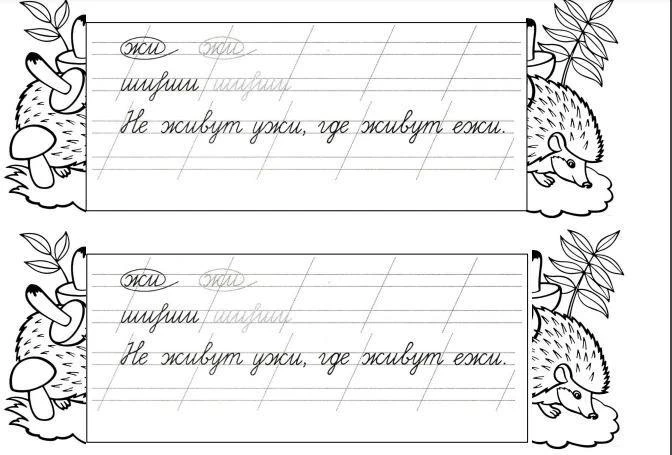 жи жи
шиши шиши
Не живут ужи, где живут ежи.
жи жи
шиши шиши
Не живут ужи, где живут ежи.